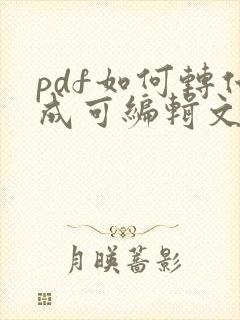 pdf如何轉
成可編輯文
月暎薔影